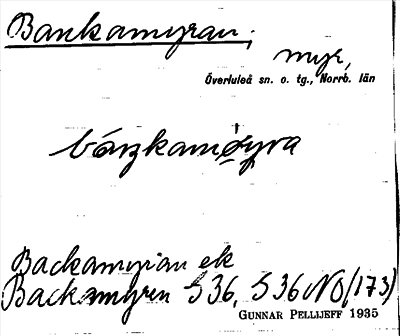 Bankamyran;
myr,
Överluleå sn. o. tg., Norrb. län
Backamyran ek
Backamyren S36, S36 NO (173)
GUNNAR PELLIJEFF 1935